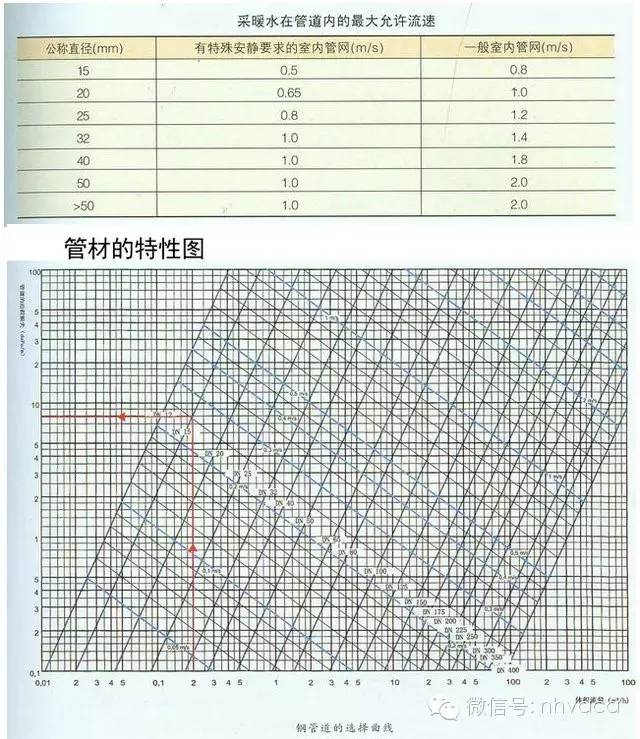 采暖水在管道内的最大允许流速
公称直径(mm) 有特殊安静要求的室内管网(m/s) 一般室内管网(m/s)
15 0.5 0.8
20 0.65 1.0
25 0.8 1.2
32 1.0 1.4
40 1.0 1.8
50 1.0 2.0
>50 1.0 2.0
管材的特性图
100
5
4
3
2
10
5
4
3
2
1
5
4
3
2
0,1
1 m/s
2 m/s
0,5 m/s
0,4 m/s
0,3 m/s
0,2 m/s
1 m/s
0,1 m/s
0,5 m/s
0,05 m/s
DN 15
DN 20
DN 25
DN 32
DN 40
DN 50
DN 65
DN 80
DN 100
DN 125
DN 150
DN 175
DN 200
DN 225
DN 250
DN 300
DN 350
DN 400
0,01 2 3 4 5 0,1 2 3 4 5 1 2 3 4 5 10 2 3 4 5 100
体积流量 (m³/h)
微信号: nhvaca
钢管道的选择曲线